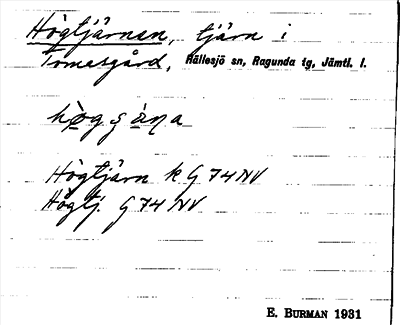 Högtjärnen, tjärn i
Tomasgård, Hällesjö sn, Ragunda tg, Jämtl. l.
Högtjärn k G 74 NV
Högtj. G 74 NV
E. BURMAN 1931